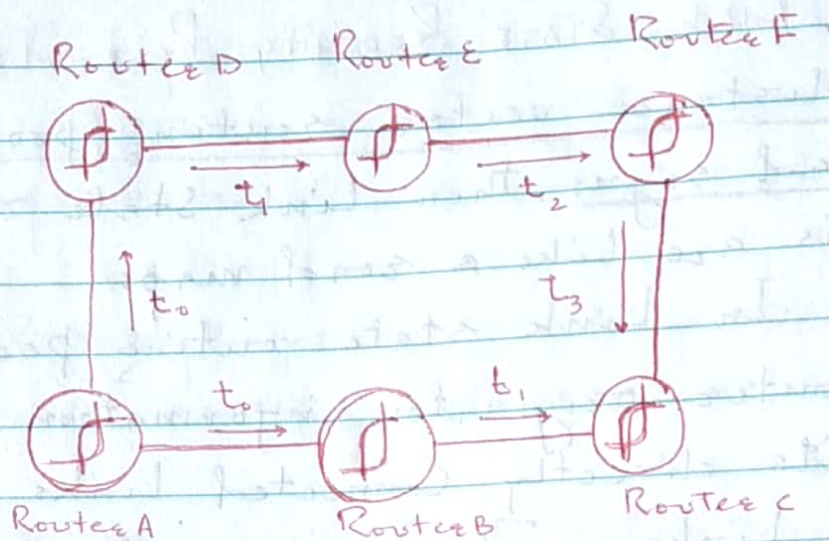 Router D Router E Router F
t1 t2
t0 t3
t0 t1
Router A Router B Router C